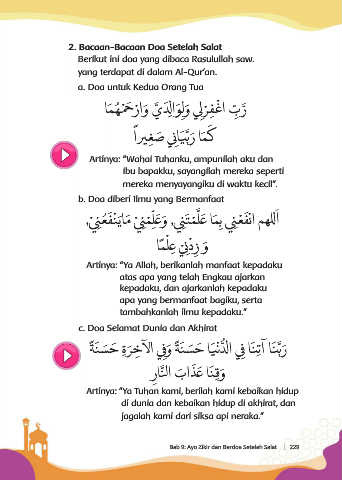 2. Bacaan-Bacaan Doa Setelah Salat
Berikut ini doa yang dibaca Rasulullah saw.
yang terdapat di dalam Al-Qur'an.
a. Doa untuk Kedua Orang Tua
رَبِّ اغْفِرْلِي وَلِوَالِدَيَّ وَارْحَمْهُمَا
كَمَا رَبَّيَانِي صَغِيراً
Artinya: “Wahai Tuhanku, ampunilah aku dan
ibu bapakku, sayangilah mereka seperti
mereka menyayangiku di waktu kecil”.
b. Doa diberi Ilmu yang Bermanfaat
اَللهم انْفَعْنِي بِمَا عَلَّمْتَنِي, وَعَلِّمْنِيْ مَايَنْفَعُنِيْ,
وَ زِدْنِيْ عِلْمًا
Artinya: “Ya Allah, berikanlah manfaat kepadaku
atas apa yang telah Engkau ajarkan
kepadaku, dan ajarkanlah kepadaku
apa yang bermanfaat bagiku, serta
tambahkanlah ilmu kepadaku.”
c. Doa Selamat Dunia dan Akhirat
رَبَّنَا آتِنَا فِي الدُّنْيَا حَسَنَةً وَفِي الآخِرَةِ حَسَنَةً
وَقِنَا عَذَابَ النَّارِ
Artinya: “Ya Tuhan kami, berilah kami kebaikan hidup
di dunia dan kebaikan hidup di akhirat, dan
jagalah kami dari siksa api neraka.”
Bab 9: Ayo Zikir dan Berdoa Setelah Salat | 229